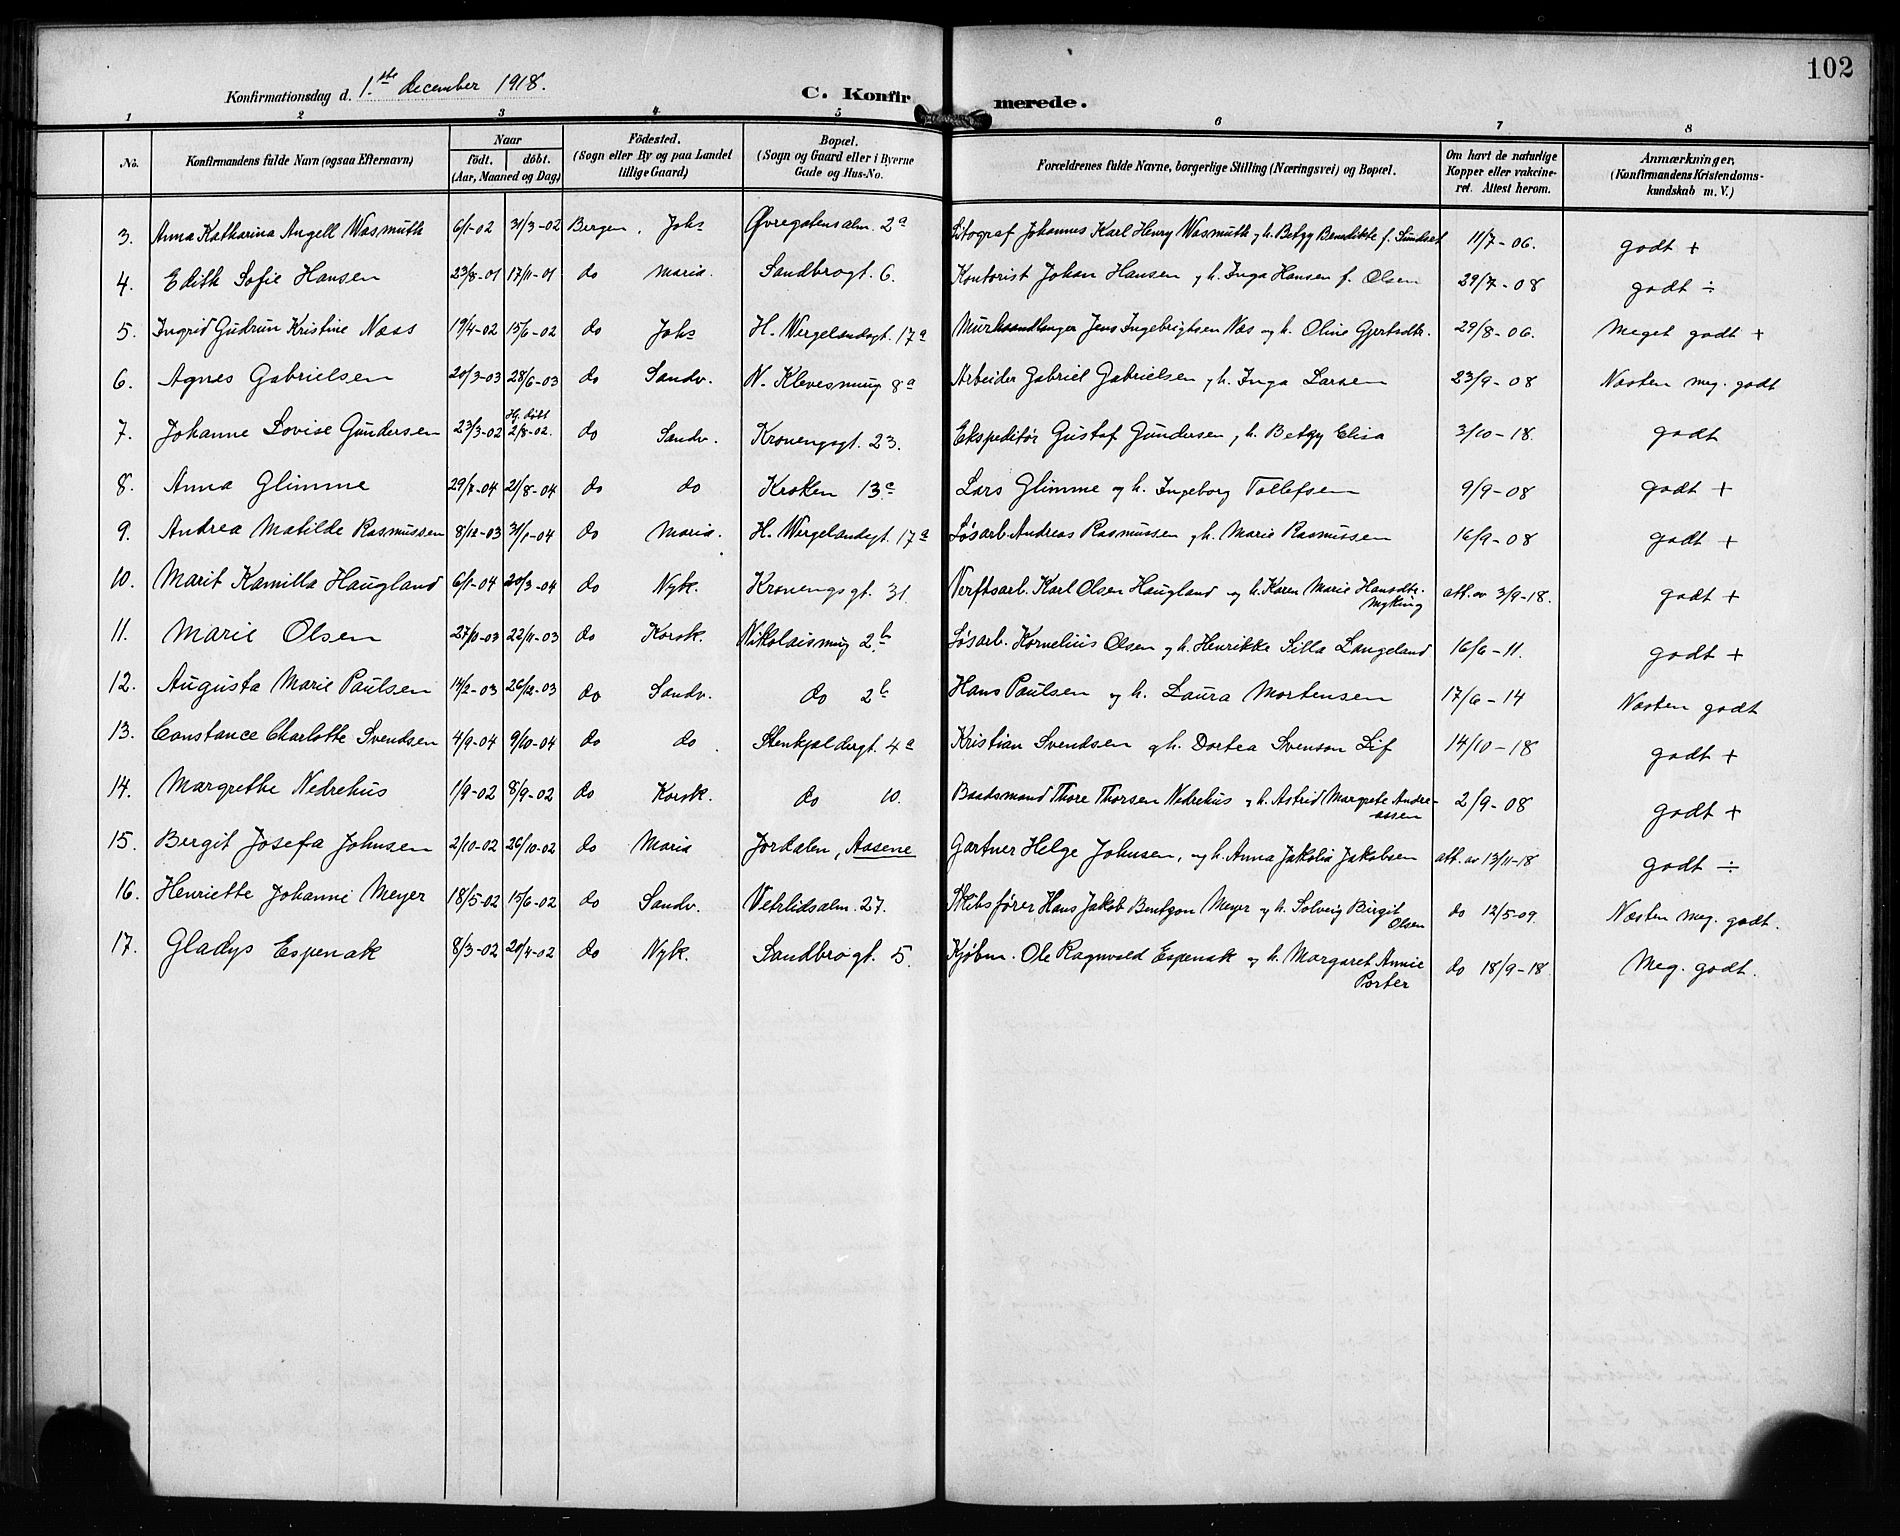 102
Konfirmationsdag d. 1.ste december 1918.
C. Konfirmerede.
1 2 3 4 5 6 7 8
No. Konfirmandens fulde Navn (ogsaa Efternavn) Naar födt. döbt. (Aar, Maaned og Dag) Födested. (Sogn eller By og paa Landet tillige Gaard) Bopæl. (Sogn og Gaard eller i Byerne Gade og Hus-No. Forældrenes fulde Navne, borgerlige Stilling (Næringsvei) og Bopæl. Om havt de naturlige Kopper eller vakcineret. Attest herom. Anmærkninger, (Konfirmandens Kristendomskundskab m. V.)
3. Anna Katharina Angell Wasmuth 6/1-02 31/3-02 Bergen. Johs Øvregatensalm. 2a Litograf Johannes Karl Henry Wasmuth og h. Betzy Benedikte f. Sundset 11/7-06. godt +
4. Edith Sofie Hansen 23/8-01 17/11-01 do Maria. Sandbrogt. 6. Kontorist Johan Hansen og h. Inga Hansen f. Olsen 29/7-08 godt ÷
5. Ingrid Gudrun Kristine Næss 19/4-02 15/6-02 do Johs H. Wergelandsgt. 17a Murhaandlanger Jens Ingebrigtsen Næs og h. Oline Gjertsdtr. 29/8-06. Meget godt +
6. Agnes Gabrielsen 20/3-03 28/6-03 do Sandv. N. Klevesmug 8a Arbeider Gabriel Gabrielsen og h. Inga Larsen 23/9-08 Næsten meg. godt
7. Johanne Lovise Gundersen 23/3-02 Hj. døbt 2/8-02. do Sandv. Kronengsgt. 23. Ekspeditør Gustaf Gundersen og h. Betzy Elisa 3/10-18. godt
8. Anna Glimme 29/7-04 21/8-04 do do Kroken 13c Lars Glimme og h. Ingeborg Tollefsen 9/9-08 godt +
9. Andrea Matilde Rasmussen 8/12-03 31/1-04 do Maria. H. Wergelandsgt. 17a Løsarb. Andreas Rasmussen og h. Marie Rasmussen 16/9-08 godt +
10. Marit Kamilla Haugland 6/1-04 20/3-04 do Nyk. Kronengsgt. 31. Verftsarb. Karl Olsen Haugland og h. Karen Marie Hansdtr. Myking att. av 3/9-18. godt +
11. Marie Olsen 27/10-03 22/11-03 do Korsk. Nikolaismug 2b Løsarb. Kornelius Olsen og h. Henrikke Silla Langeland 16/6-11. godt +
12. Augusta Marie Paulsen 14/2-03 26/12-03 do Sandv. do 2b Hans Paulsen og h. Laura Mortensen 17/6-14 Næsten godt
13. Constance Charlotte Svendsen 4/9-04 9/10-04 do do Stenkjeldergt. 4a Kristian Svendsen og h. Dortea Svenson Lif 14/10-18 godt +
14. Margrethe Nedrehus 1/9-02 8/9-02 do Korsk. do 10. Baadsmand Thore Thorsen Nedrehus og h. Astrid Margrete Andreassen 2/9-08 godt +
15. Bergit Josefa Johnsen 2/10-02 26/10-02 do Maria Jordalen, Aasene Gartner Helge Johnsen, og h. Anna Jakobia Jakobsen att. av 13/11-18 godt ÷
16. Henriette Johanne Meyer 18/5-02 15/6-02 do Sandv. Vetrlidsalm. 27. Skibsfører Hans Jakob Bentzon Meyer og h. Solveig Birgit Olsen do 12/5-09. Næsten meg. godt.
17. Gladys Espenak 8/3-02 20/4-02 do Nyk. Sandbrogt. 5. Kjøbm. Ole Ragnvald Espenak og h. Margaret Annie Porter do 18/9-18 Meg. godt.